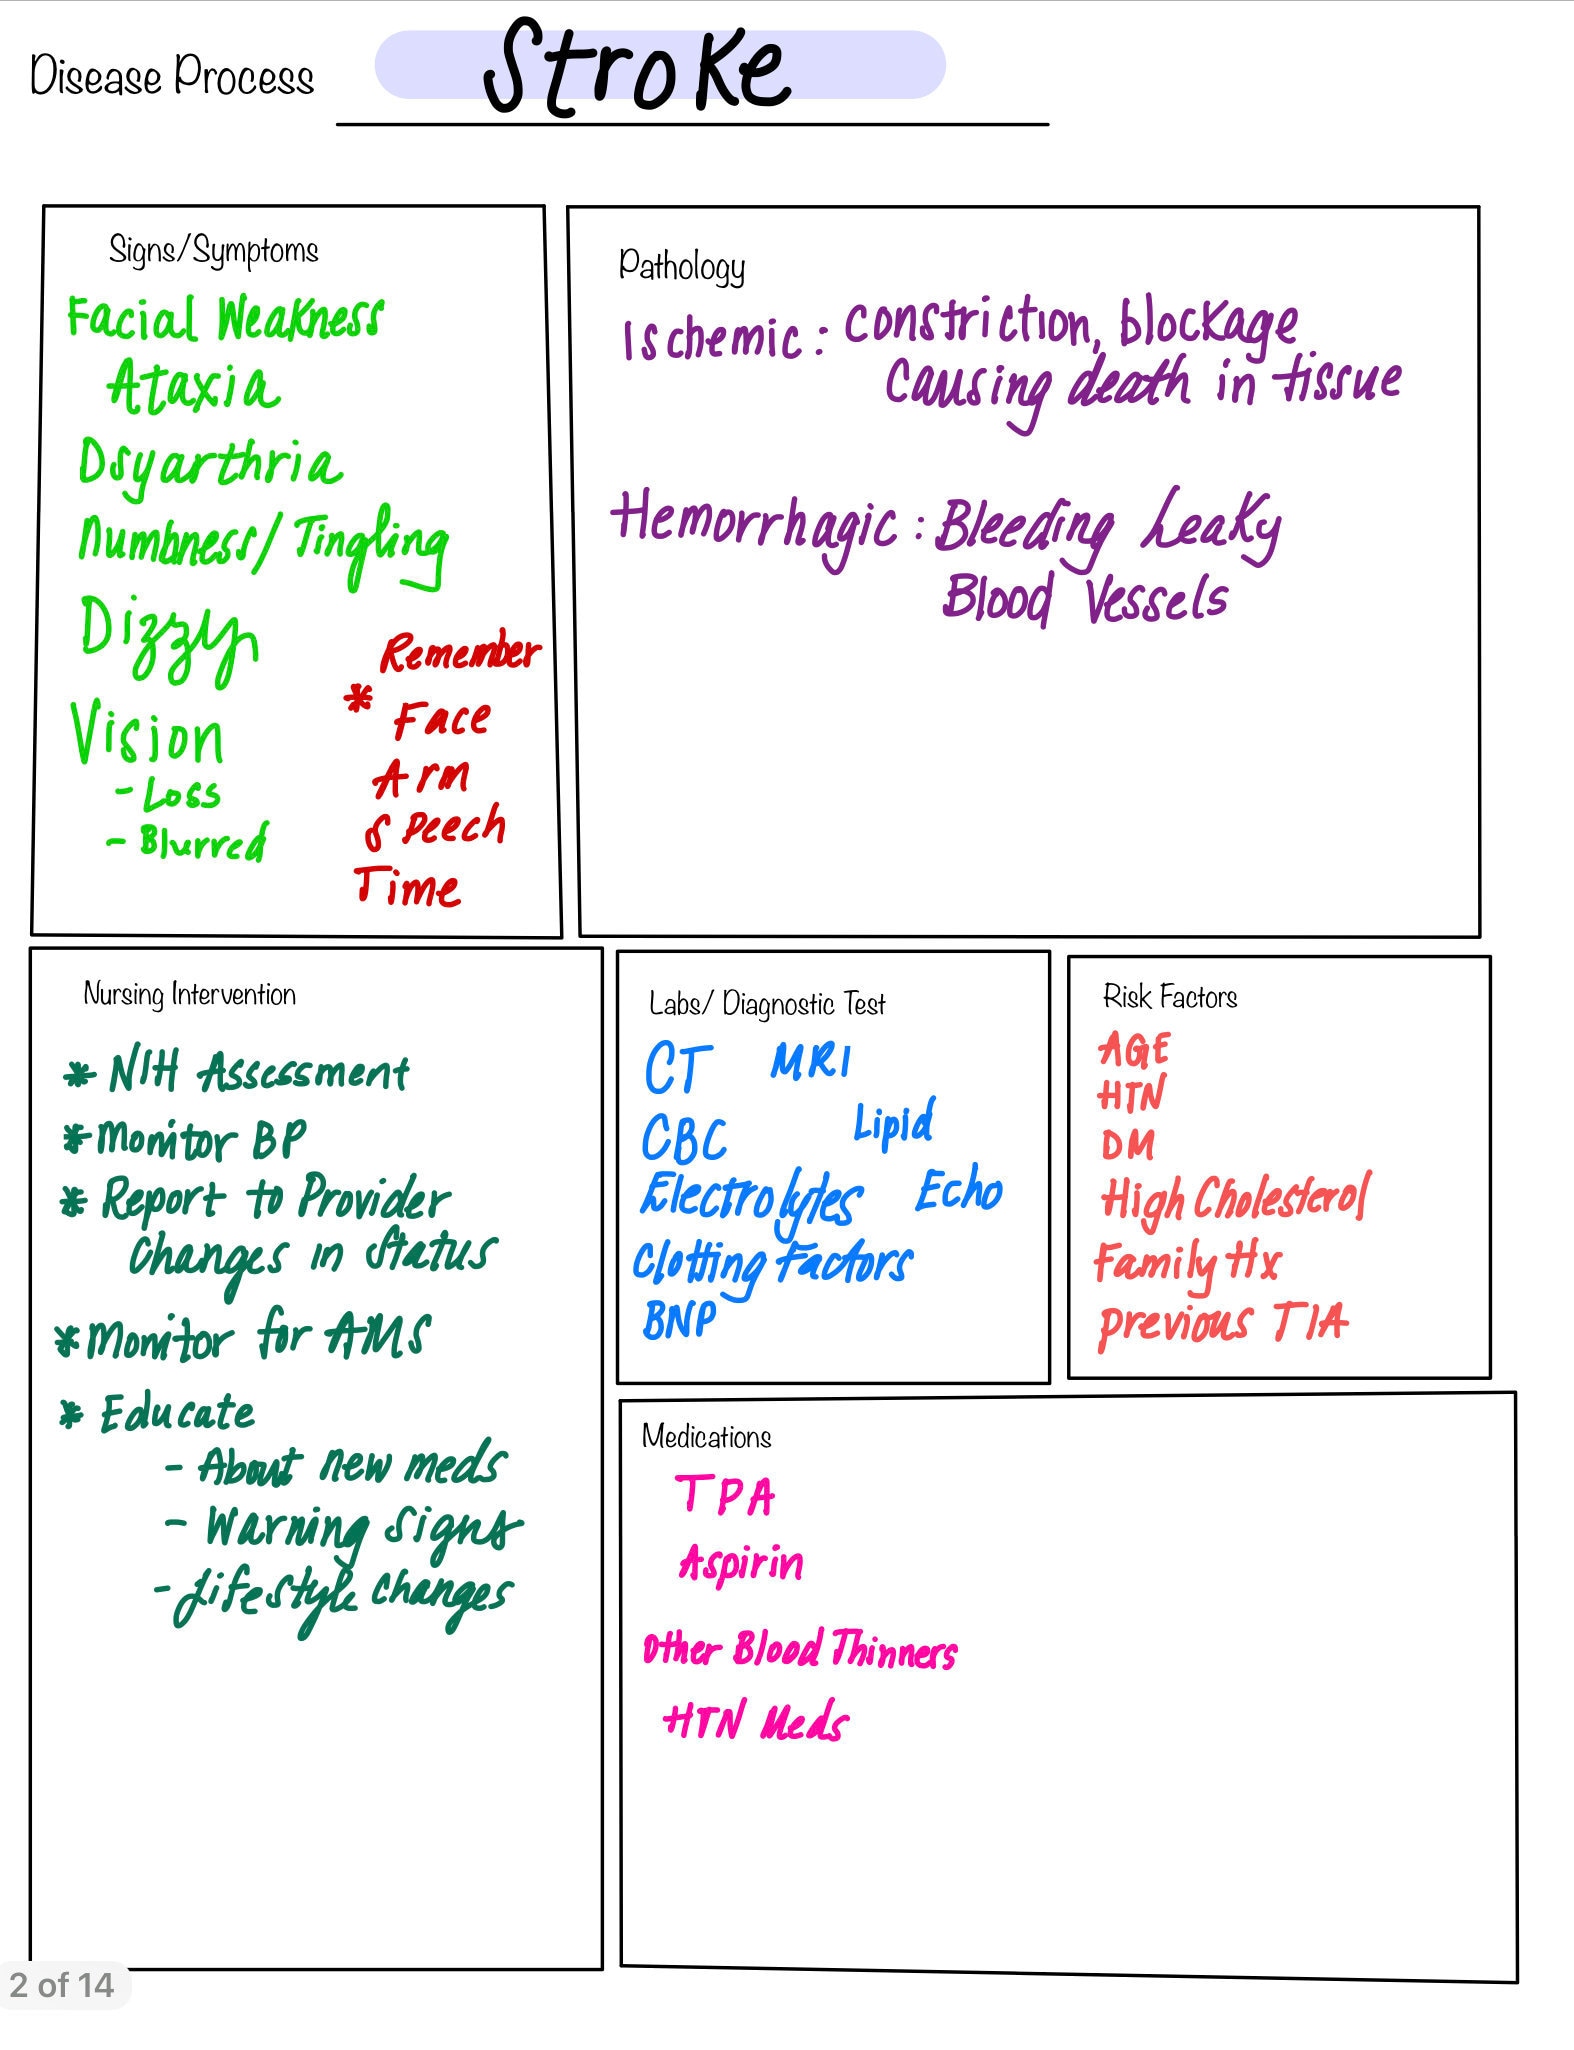 Disease Process Stroke
Signs/Symptoms
Facial Weakness
Ataxia
Dsyarthria
Numbness/Tingling
Dizzy
Vision
- Loss
- Blurred
Remember
* Face
Arm
Speech
Time
Pathology
Ischemic: Constriction, blockage
causing death in tissue
Hemorrhagic: Bleeding Leaky
Blood Vessels
Nursing Intervention
* NIH Assessment
* Monitor BP
* Report to Provider
Changes in Status
* Monitor for AMS
* Educate
- About new meds
- Warning Signs
- Lifestyle changes
Labs/ Diagnostic Test
CT MRI
CBC Lipid
Electrolytes Echo
Clotting Factors
BNP
Risk Factors
AGE
HTN
DM
High Cholesterol
Family Hx
previous TIA
Medications
TPA
Aspirin
Other Blood Thinners
HTN Meds
2 of 14